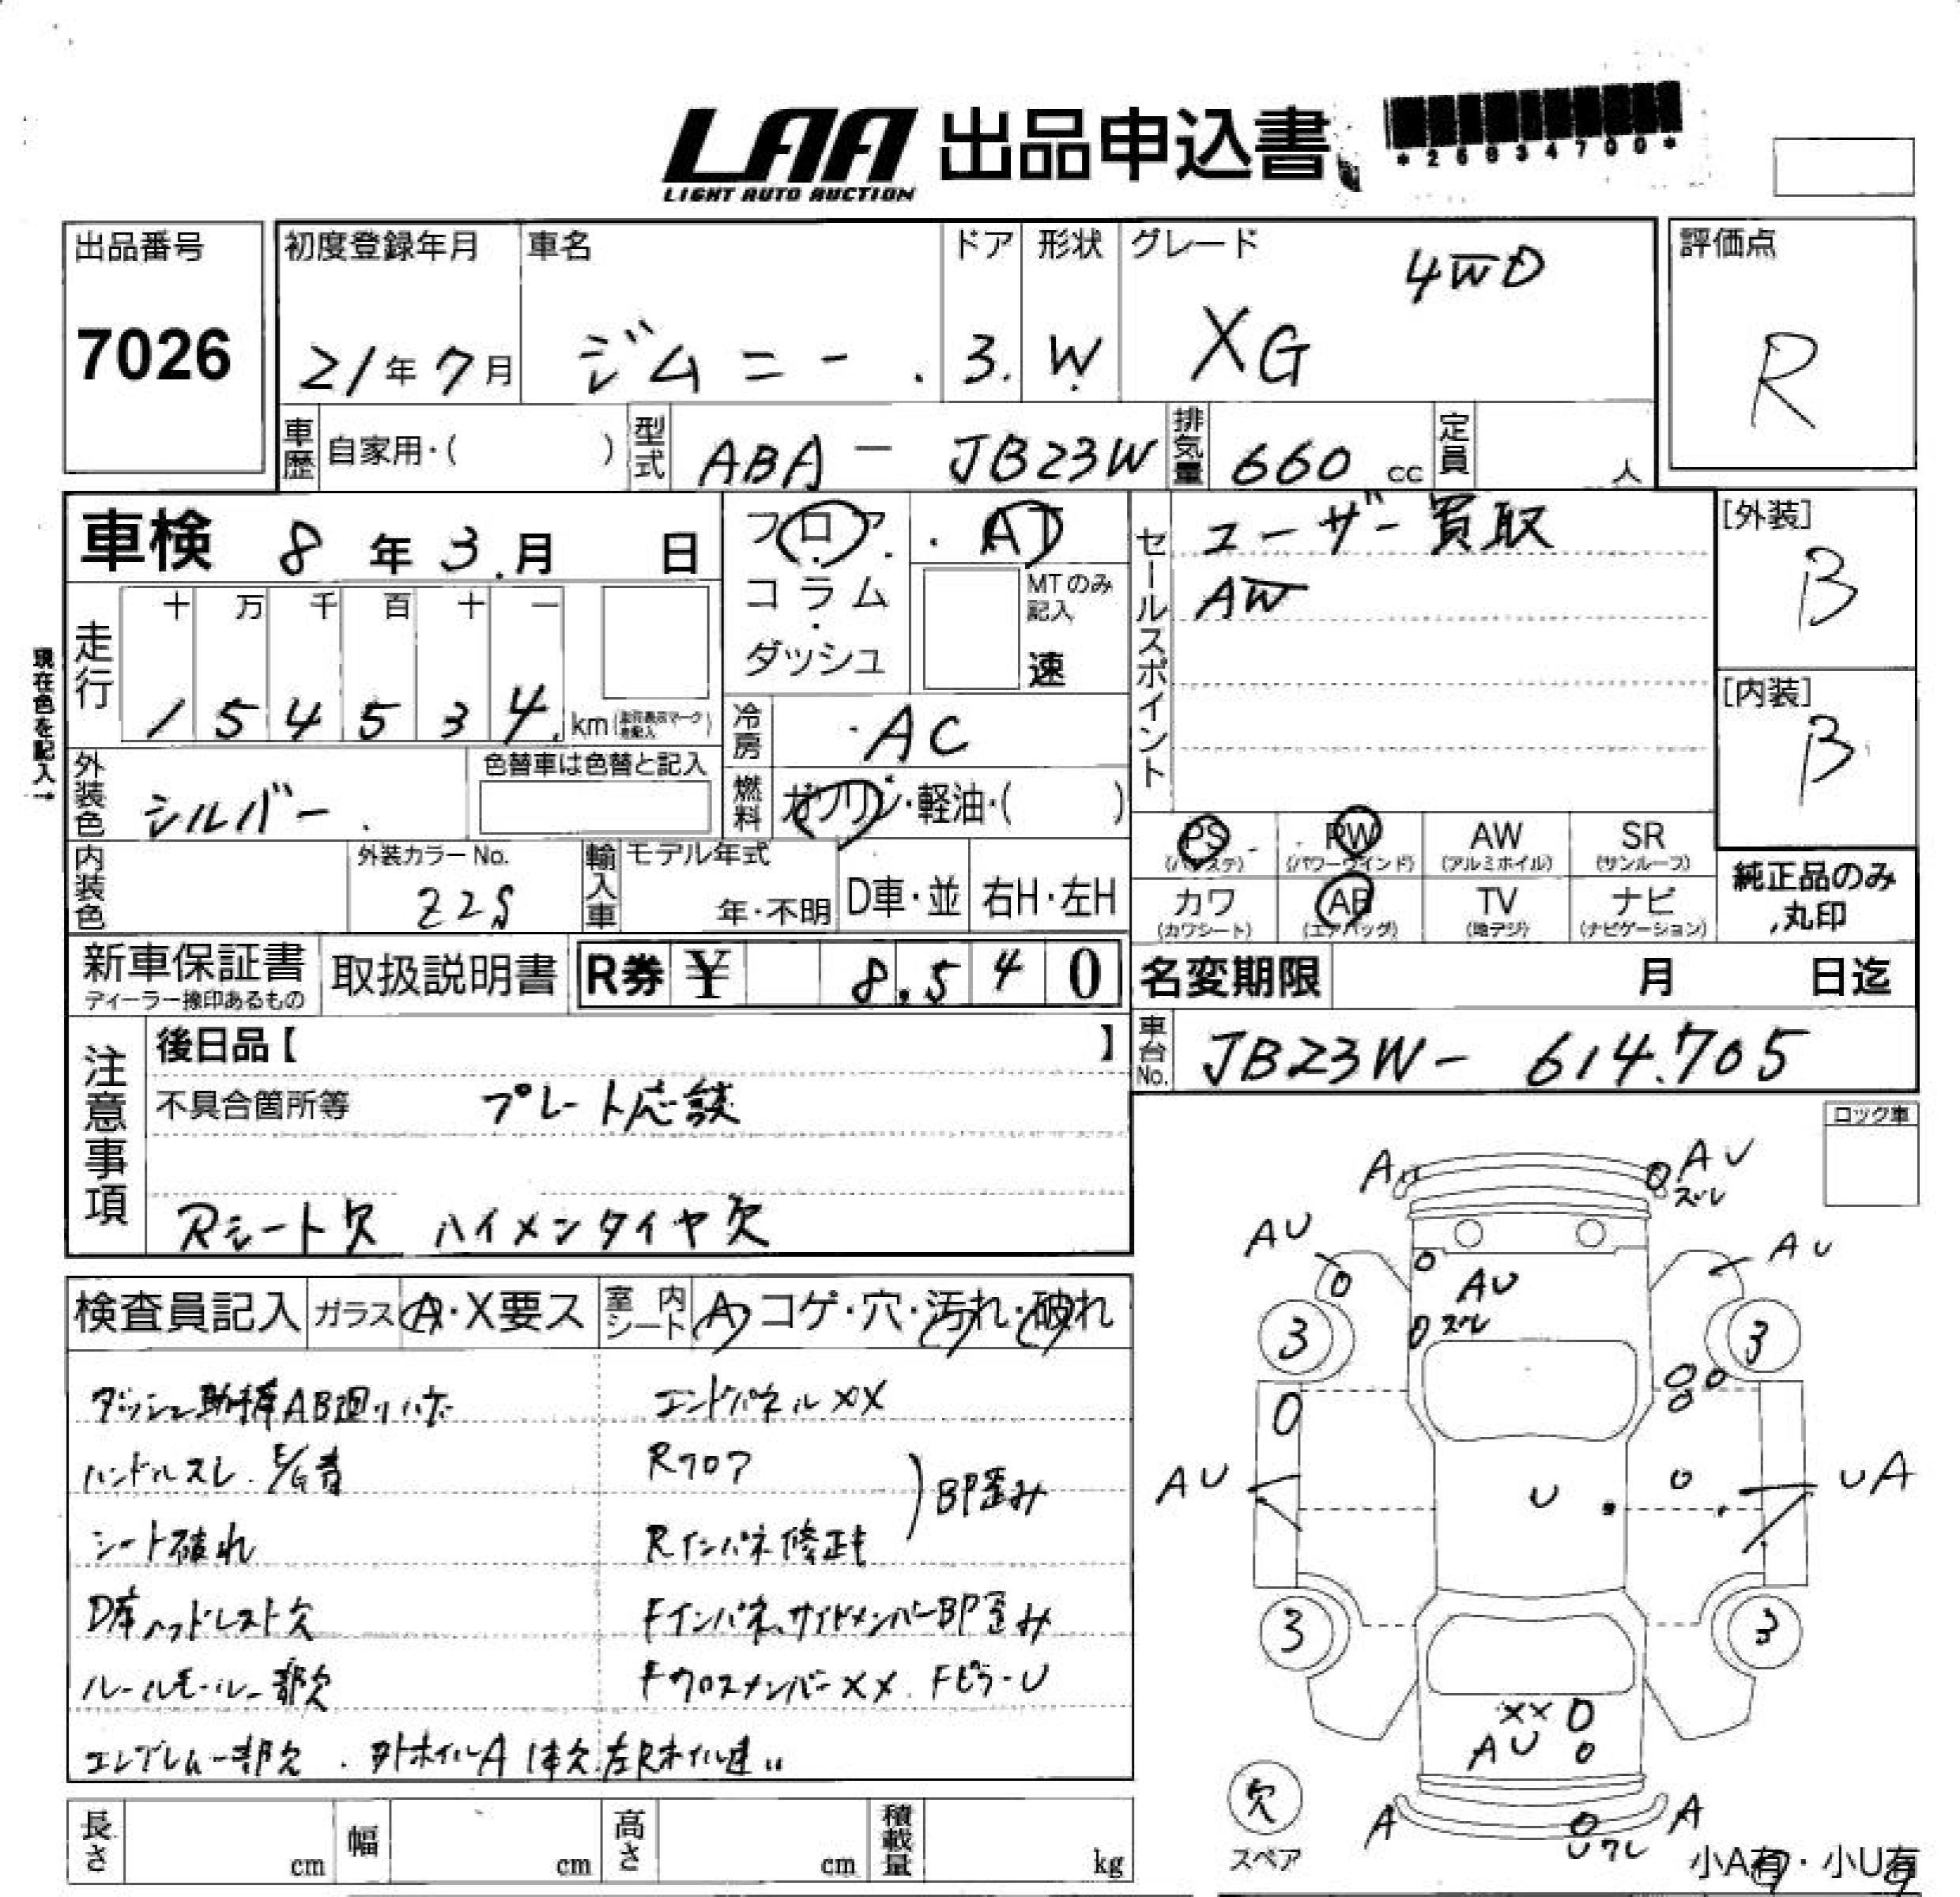 LAA 出品申込書
LIGHT AUTO AUCTION
出品番号
7026
初度登録年月
21年7月
車名
ジムニー
ドア
3
形状
W
グレード
4WD
XG
評価点
R
車歴
自家用・( )
型式
ABA - JB23W
排気量
660 cc
定員
人
車検 8年3月 日
走行
十 万 千 百 十 一
1 5 4 5 3 4 km
現在色を記入→
フロア
コラム
ダッシュ
AT
MTのみ記入
速
冷房
AC
燃料
ガソリン・軽油・( )
セールスポイント
ユーザー買取
AW
[外装]
B
[内装]
B
外装色
シルバー
色替車は色替と記入
内装色
外装カラーNo.
Z2S
輸入車
モデル年式
年・不明
D車・並
右H・左H
PS
(パワステ)
PW
(パワーウインド)
AW
(アルミホイル)
SR
(サンルーフ)
カワ
(カワシート)
AB
(エアバッグ)
TV
(地デジ)
ナビ
(ナビゲーション)
純正品のみ
丸印
新車保証書
ディーラー捺印あるもの
取扱説明書
R券 ¥ 8,540
名変期限 月 日迄
車台No.
JB23W- 614705
注意事項
後日品【 】
不具合箇所等 プレート応談
Rシート欠 ハイメンタイヤ欠
ロック車
検査員記入
ガラス A・X要ス
室内シート
A・コゲ・穴・汚れ・破れ
エンドパネルXX
ハンドルスレ. E/G音
Rフロア
BP歪み
シート破れ
Rインパネ修正
D席ヘッドレスト欠
Fインパネ、サイドメンバーBP歪み
Fクロスメンバー XX. Fピラー U
エンブレム一部欠
A
AU
ズレ
AU
AU
AU
ズレ
3
3
AU
U
UA
3
3
XX
AU
欠
スペア
A
A
Uワレ
小A有・小U有
長さ cm
幅 cm
高さ cm
積載量 kg